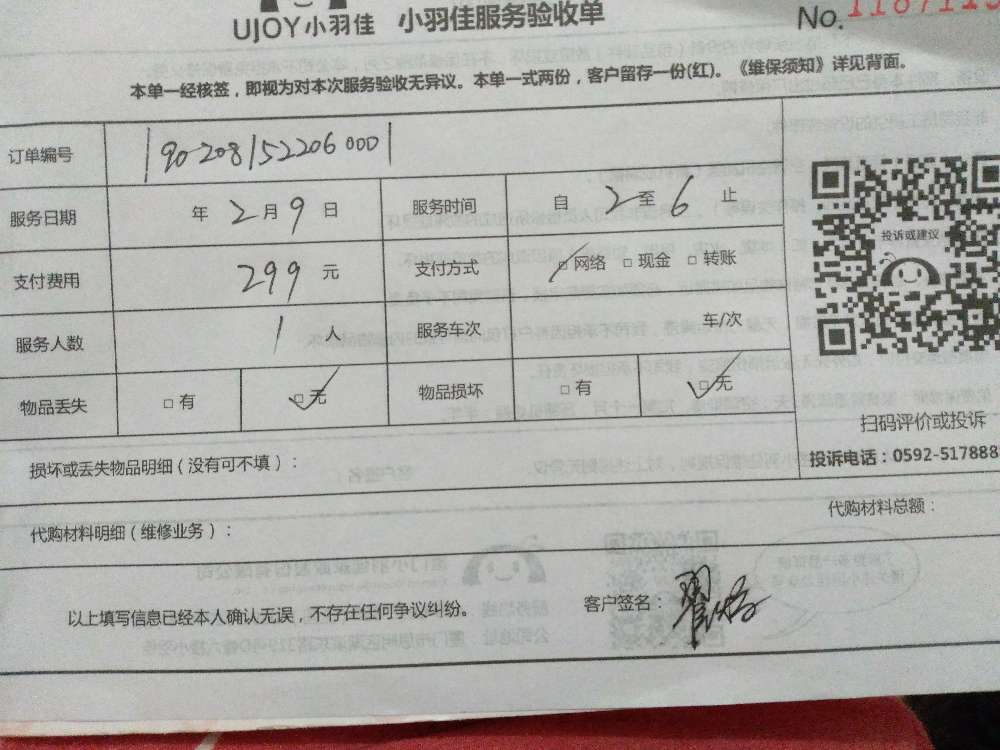 UJOY小羽佳 小羽佳服务验收单
No.
本单一经核签，即视为对本次服务验收无异议。本单一式两份，客户留存一份(红)。《维保须知》详见背面。
订单编号 190-208152206000
服务日期 年2月9日 服务时间 自2至6止
投诉或建议
支付费用 299元 支付方式 □网络 □现金 □转账
服务人数 1 服务车次 车/次
物品丢失 □有 □无 物品损坏 □有 □无
扫码评价或投诉
投诉电话：0592-517888
损坏或丢失物品明细（没有可不填）：
代购材料明细（维修业务）： 代购材料总额：
以上填写信息已经本人确认无误，不存在任何争议纠纷。 客户签名：